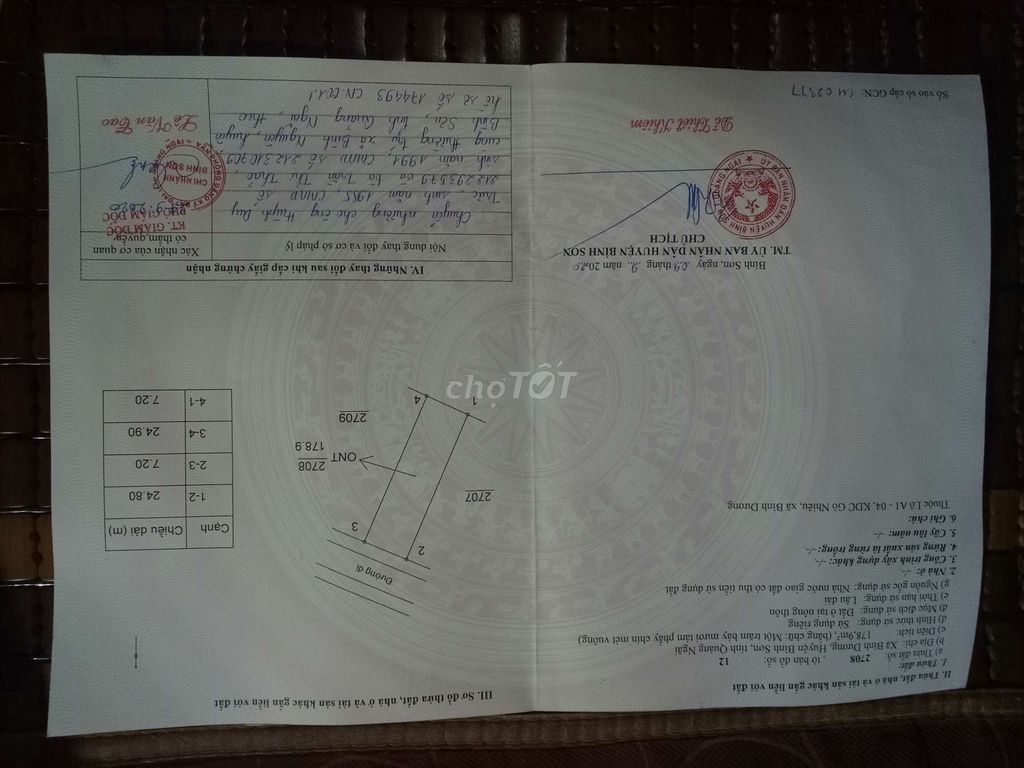 II. Thửa đất, nhà ở và tài sản khác gắn liền với đất
1. Thửa đất:
a) Thửa đất số: 2708 , tờ bản đồ số: 12
b) Địa chỉ: Xã Bình Dương, Huyện Bình Sơn, tỉnh Quảng Ngãi
c) Diện tích: 178,9m², (bằng chữ: Một trăm bảy mươi tám phẩy chín mét vuông)
d) Hình thức sử dụng: Sử dụng riêng
đ) Mục đích sử dụng: Đất ở tại nông thôn
e) Thời hạn sử dụng: Lâu dài
g) Nguồn gốc sử dụng: Nhà nước giao đất có thu tiền sử dụng đất
2. Nhà ở: -/-
3. Công trình xây dựng khác: -/-
4. Rừng sản xuất là rừng trồng: -/-
5. Cây lâu năm: -/-
6. Ghi chú:
Thuộc Lô A1 - 04, KDC Gò Nhiêu, xã Bình Dương
Bình Sơn, ngày 29 tháng 9 năm 2020
TM. ỦY BAN NHÂN DÂN HUYỆN BÌNH SƠN
CHỦ TỊCH
ỦY BAN NHÂN DÂN HUYỆN BÌNH SƠN
Đỗ Thiết Khiêm
Số vào sổ cấp GCN: CH 02377
III. Sơ đồ thửa đất, nhà ở và tài sản khác gắn liền với đất
Đường đi
2
3
2707
ONT
2708
178.9
2709
1
4
Cạnh Chiều dài (m)
1-2 24.80
2-3 7.20
3-4 24.90
4-1 7.20
chợTỐT
IV. Những thay đổi sau khi cấp giấy chứng nhận
Nội dung thay đổi và cơ sở pháp lý
Xác nhận của cơ quan
có thẩm quyền
Chuyển nhượng cho ông Huỳnh Duy
Trúc, sinh năm 1995, CMND số
212293579 và bà Trần Thị Thảo
sinh năm 1991, CMND số 212310709,
cùng thường trú xã Bình Nguyên, huyện
Bình Sơn, tỉnh Quảng Ngãi, theo
hồ sơ số 174493 CN.001.1
KT. GIÁM ĐỐC
PHÓ GIÁM ĐỐC
CHI NHÁNH
BÌNH SƠN
Lê Văn Tạo